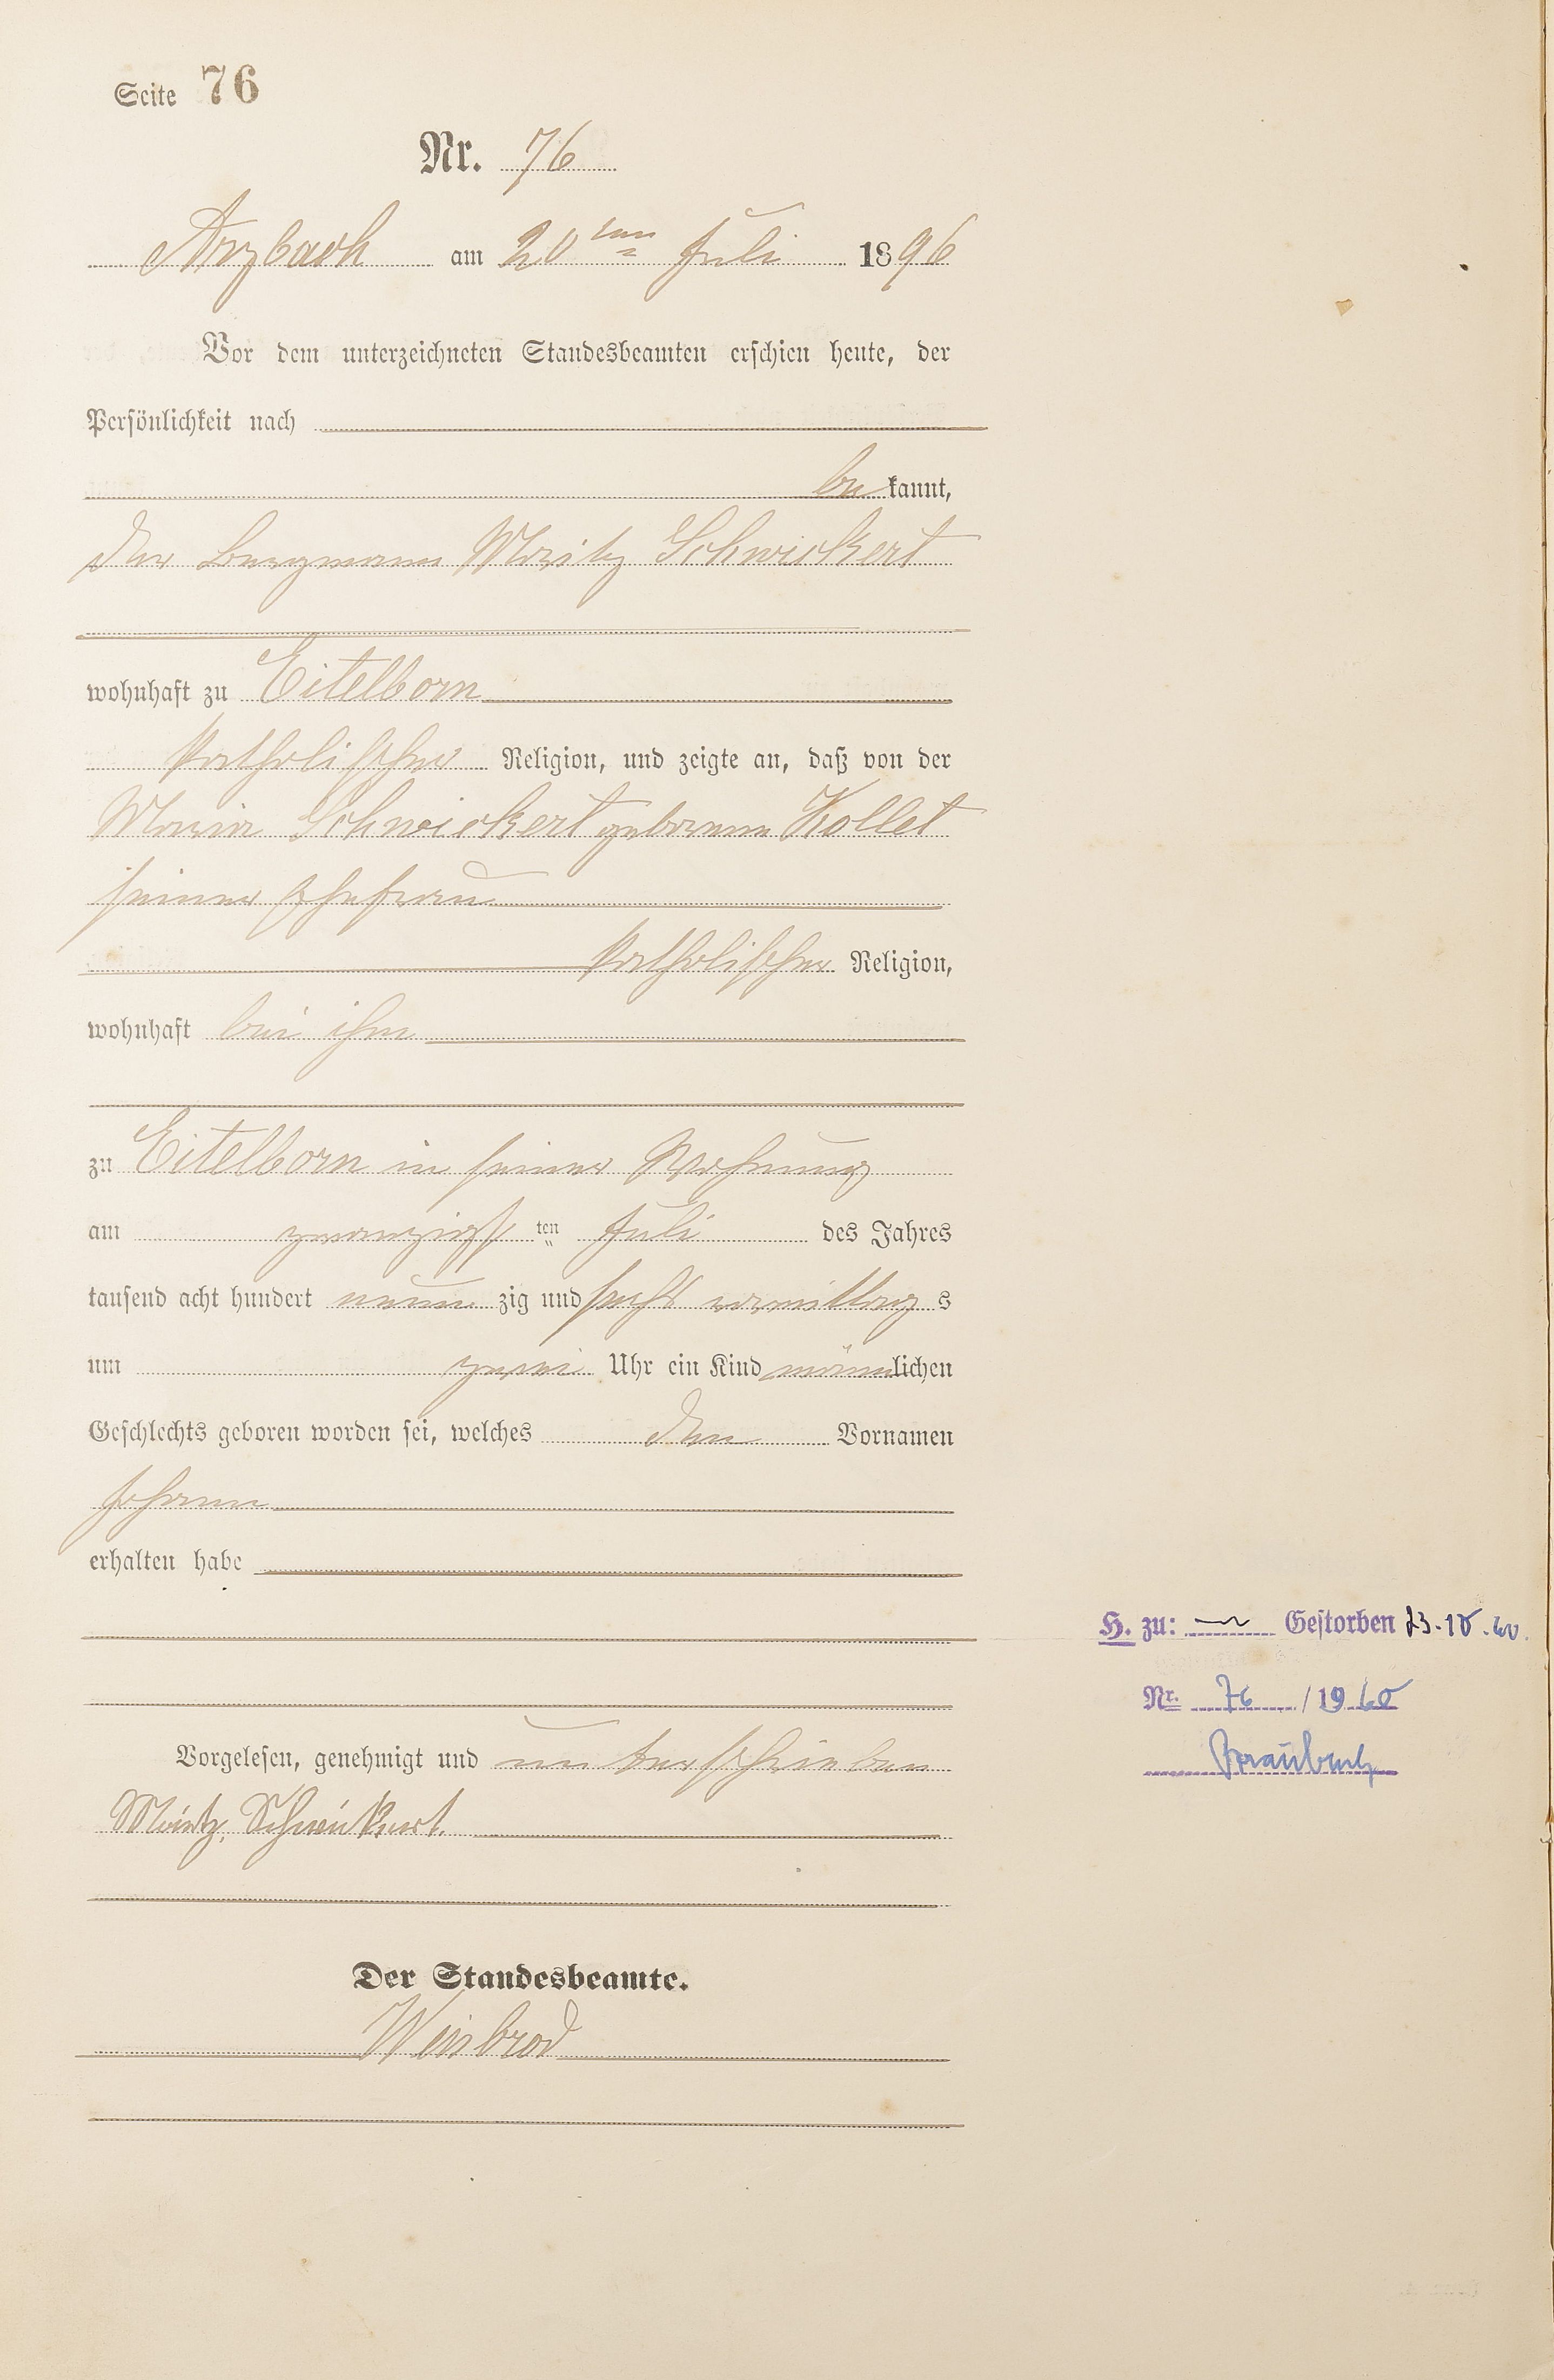 Seite 76
Nr. 76
Arzbach am 20ten Juli 1896
Vor dem unterzeichneten Standesbeamten erschien heute, der
Persönlichkeit nach
bekannt,
der Bergmann Moritz Schwickert
wohnhaft zu Eitelborn
katholischer Religion, und zeigte an, daß von der
Maria Schwickert geborenen Kollet
seiner Ehefrau
katholischer Religion,
wohnhaft bei ihm
zu Eitelborn in seiner Wohnung
am zwanzigsten Juli des Jahres
tausend acht hundert neunzig und sechs vormittags
um zwei Uhr ein Kind männlichen
Geschlechts geboren worden sei, welches den Vornamen
Johann
erhalten habe
H. zu: Gestorben 23.10.60.
Nr. 76 / 1960
Braubach
Vorgelesen, genehmigt und unterschrieben
Moritz Schwickert.
Der Standesbeamte.
Weisbrod